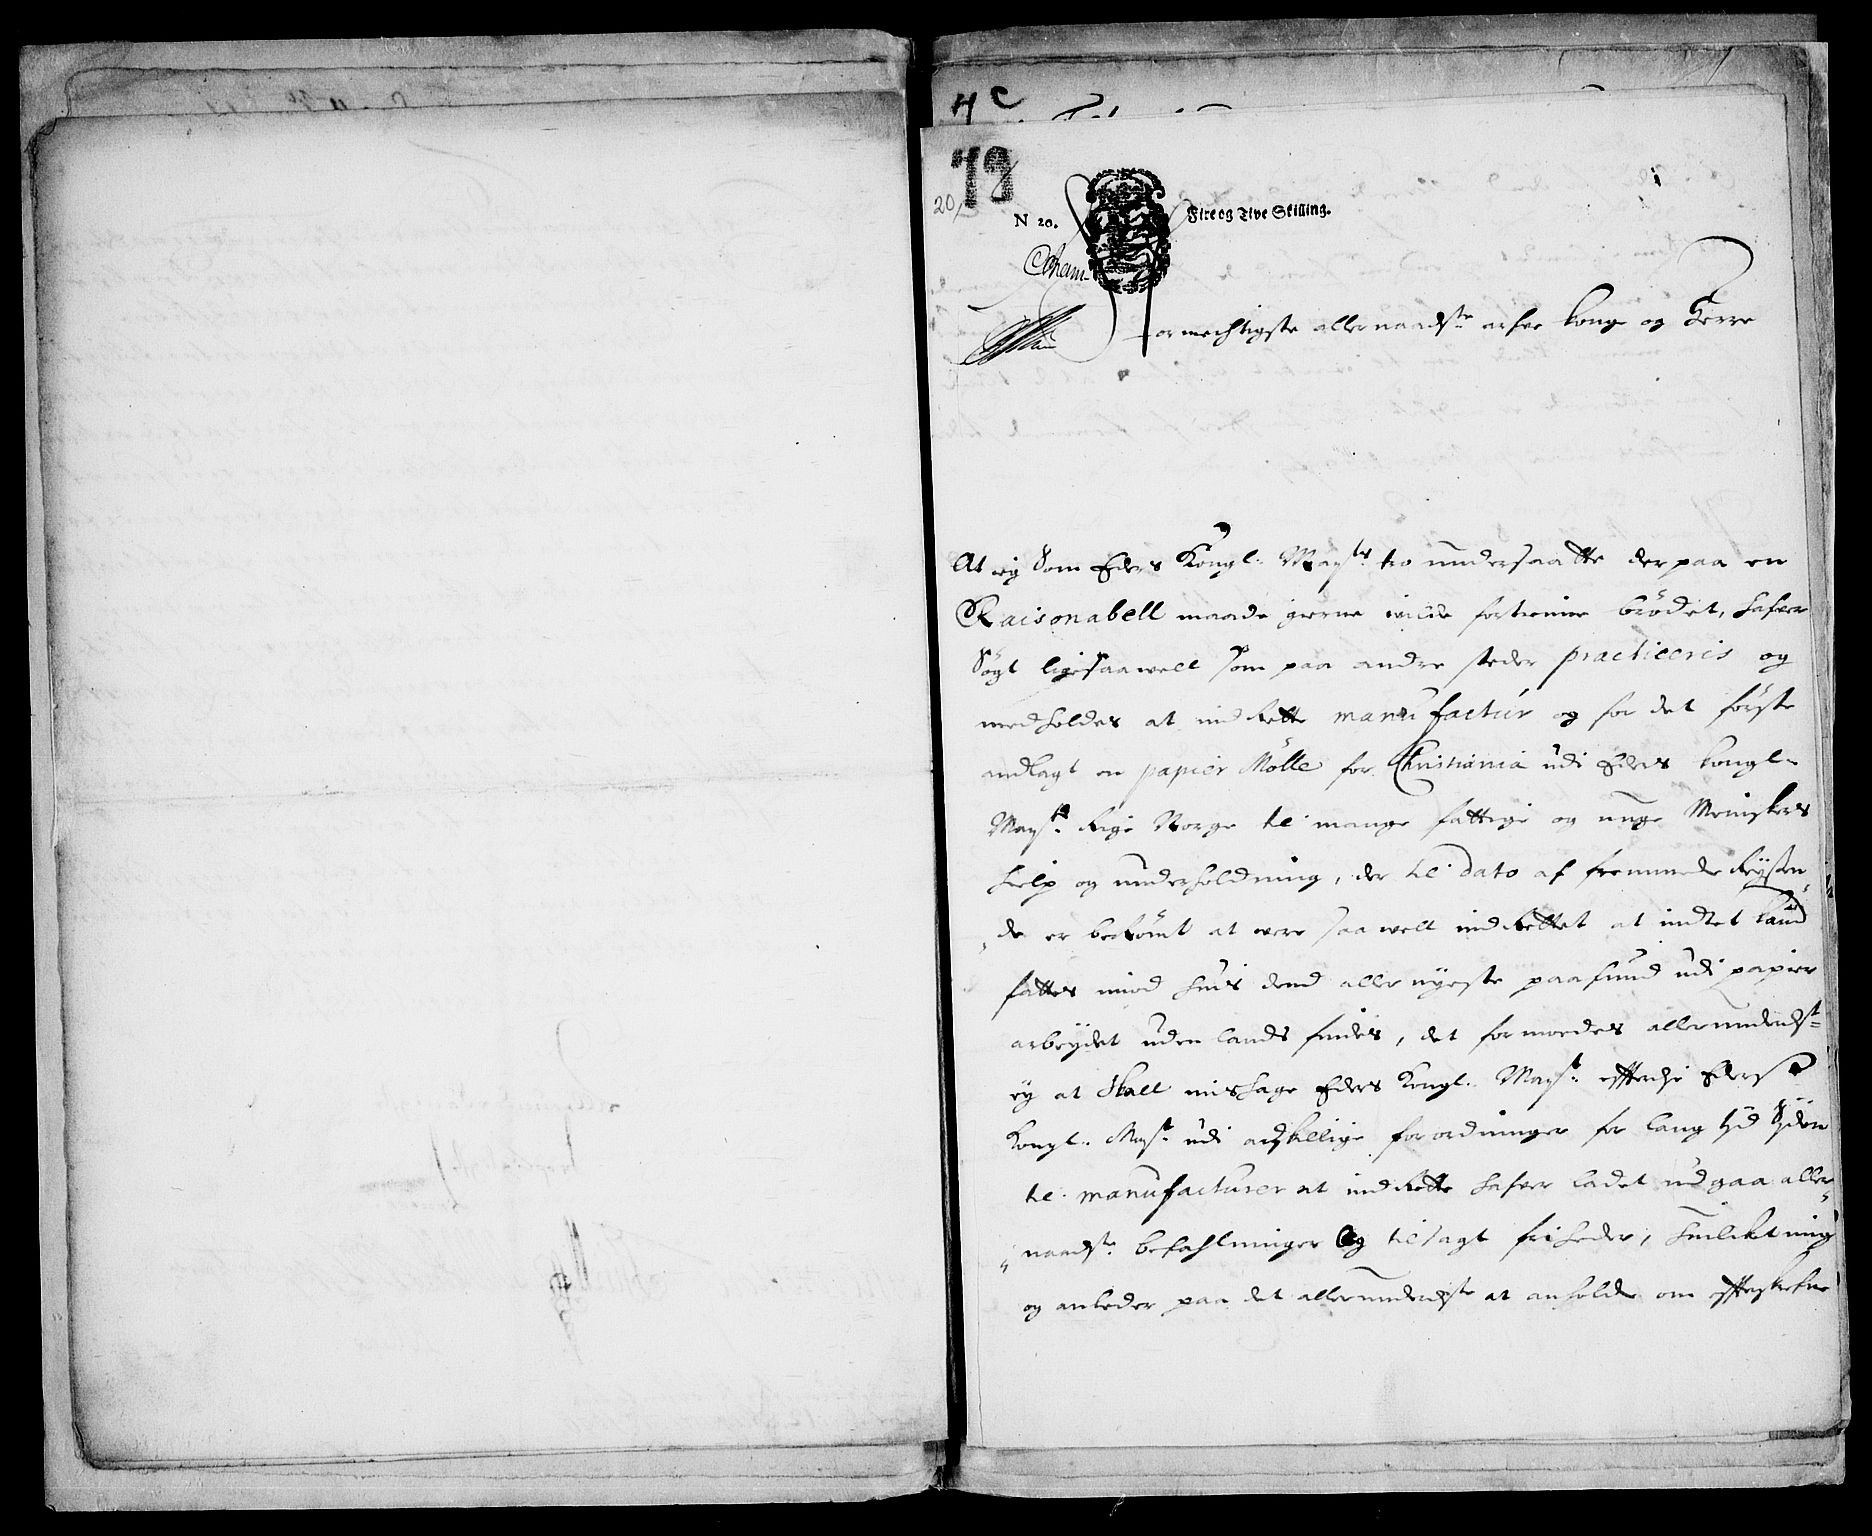 78
20,
N 20.
Fire og Tive Skilling.
Formechtigste allernaadste arfve Konge og Herre
At ieg Som Eders Kongl: Mayts tro undersaatte der paa en
Raisonabell maade gierne wille fortienne brødet, hafver
Søgt ligesaawell som paa andre steder practiceris og
medholdes at indrette manufactur og for det første
andlagt en papier Mølle for Christiania udi Eders Kongl-
Mayts Rige Norge til mange fattige og unge Meniskers
hielp og underholdning, der til dato af fremmede Reysen„
„de er berømt at vere saa well indrettet at indtet land
fattes imod huis dend aller nyeste paafund udi papier
arbeydet uden lands findes, det formoedes allerunderdst=
ey at Skall mishage Eders Kongl: Mayst: effterdi Eders
Kongl: Mayst: udi adskellige forordninger for lang tid siden
til manufacturer at indrette hafver ladet udgaa aller„
„naadst: befahlninger og tilsagt friheder, huilcket mig
og anleder paa det allerunderdigste at anholde om effterskrefne